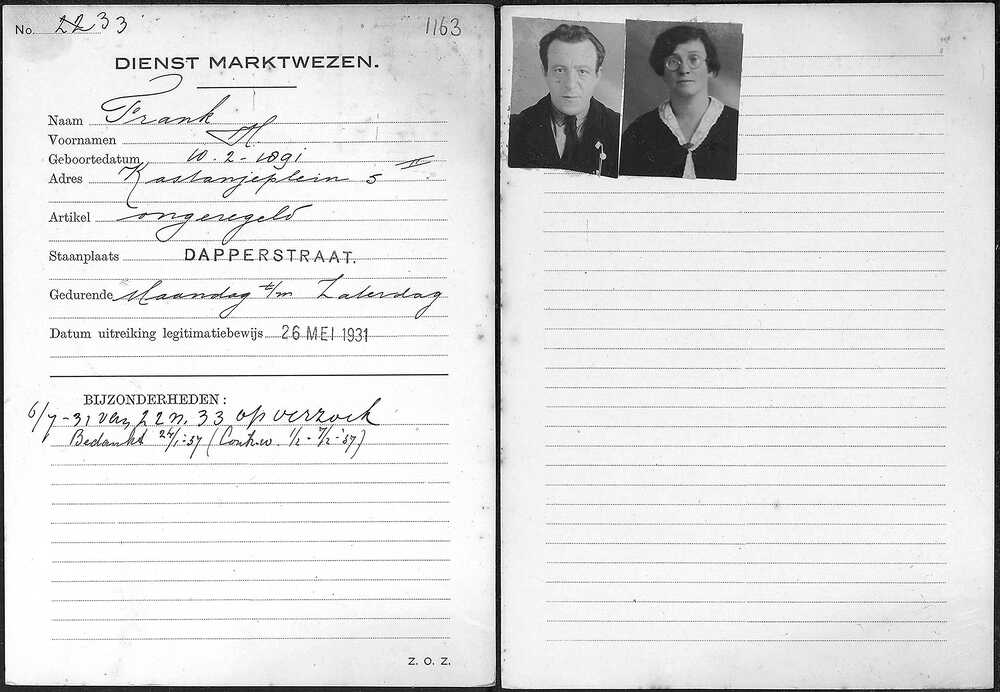 No. 22 33
1163
DIENST MARKTWEZEN.
Naam Frank
Voornamen H.
Geboortedatum 10-2-1891
Adres Kastanjeplein 5 II
Artikel ongeregeld
Staanplaats DAPPERSTRAAT.
Gedurende Maandag t/m Zaterdag
Datum uitreiking legitimatiebewijs 26 MEI 1931
BIJZONDERHEDEN:
6/7-31 van 22 n. 33 op verzoek
Bedankt 24/1-'37 (Contr.w. 1/2 - 7/2-'37)
Z. O. Z.